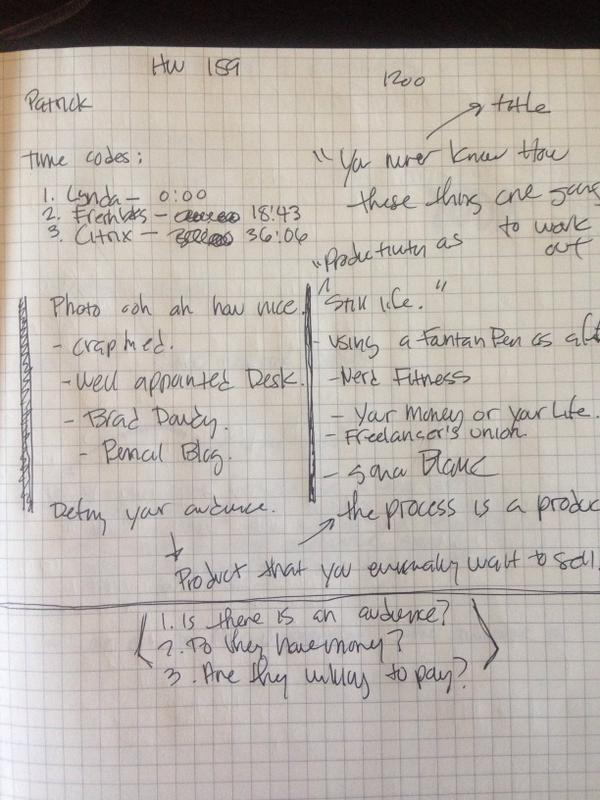 HW 189
1200
Patrick
title
time codes:
1. Lynda – 0:00
2. Freshbooks – 18:43
3. Citrix – 36:06
"You never know how
these thing are going
to work
out
"Productivity as
Still life."
Photo ooh ah how nice.
- Well appointed Desk.
- Brad Dowdy.
- Pencil Blog.
- Using a Fantan Pen as a
- Nerd Fitness
- Your Money or your Life.
- Freelancer's union.
Defing your audience.
the process is a produc
Product that you eventually want to sell.
1. Is there is an audience?
2. Do they have money?
3. Are they willing to pay?